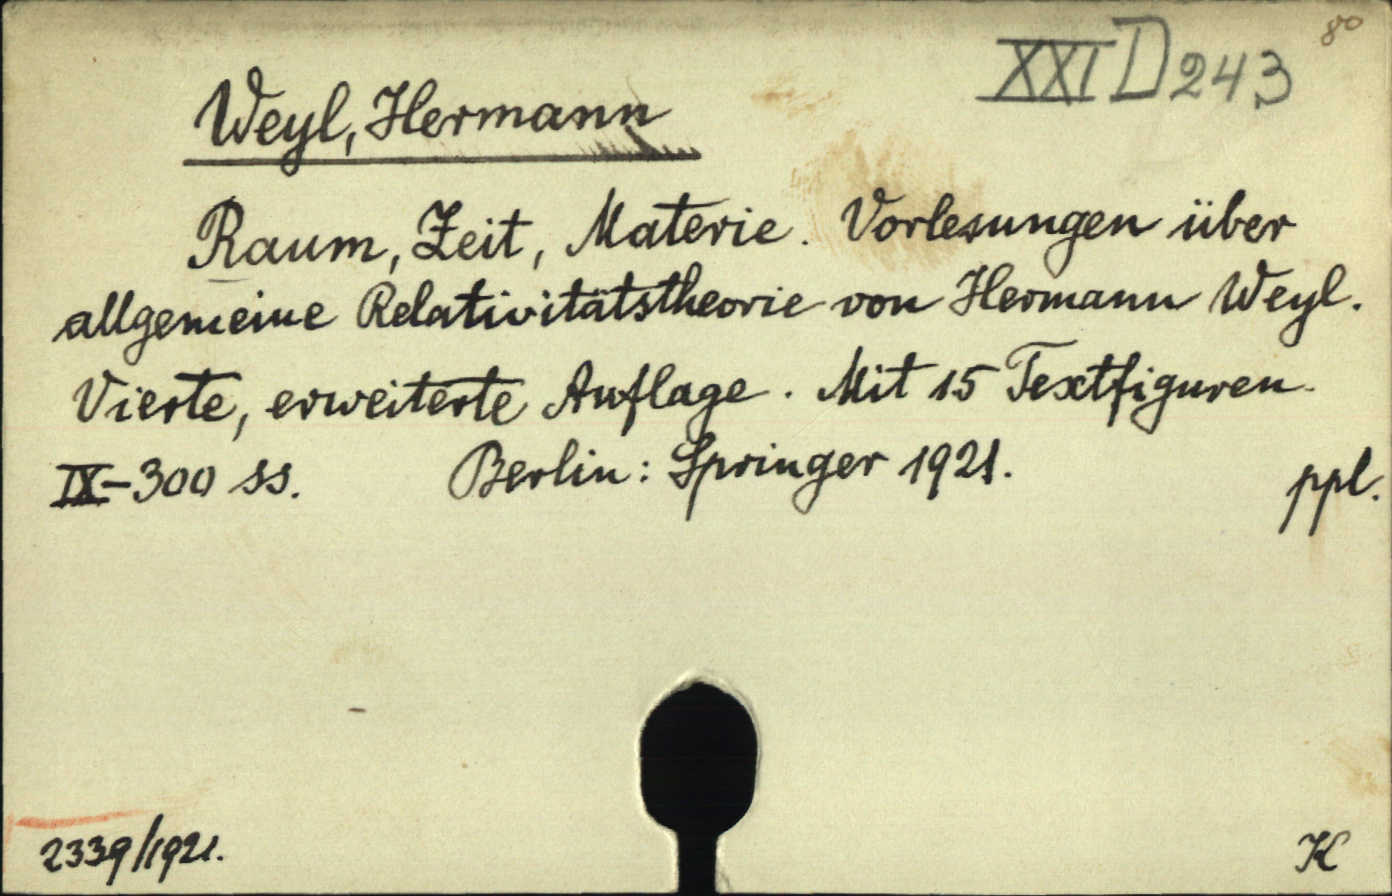 XXI D 243
8°
Weyl, Hermann
Raum, Zeit, Materie. Vorlesungen über
allgemeine Relativitätstheorie von Hermann Weyl.
Vierte, erweiterte Auflage. Mit 15 Textfiguren.
IX-300 ss. Berlin: Springer 1921. ppl.
2339/1921.
K